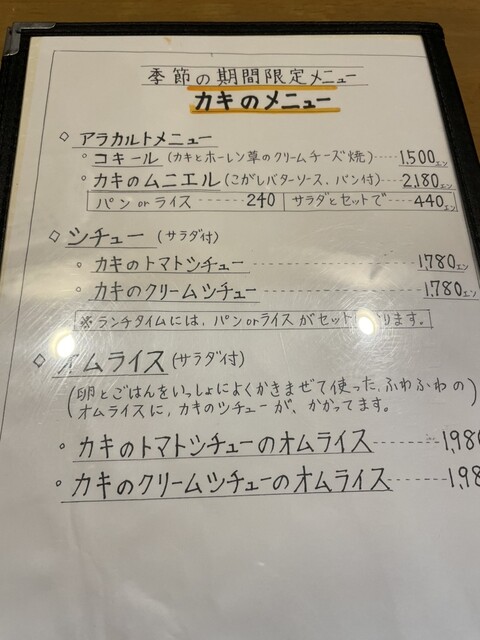 季節の期間限定メニュー
カキのメニュー
◇ アラカルトメニュー
・コキール (カキとホーレン草のクリームチーズ焼)----1,500エン
・カキのムニエル (こがしバターソース、パン付)----2,180エン
パン or ライス ------- 240 サラダとセットで ----- 440エン
◇ シチュー (サラダ付)
・カキのトマトシチュー ------ 1,780エン
・カキのクリームシチュー ------ 1,780エン
※ランチタイムには、パン or ライスがセット ります。
◇ オムライス (サラダ付)
(卵とごはんをいっしょによくかきまぜて使った、ふわふわの
オムライスに、カキのシチューが、かかってます。)
・カキのトマトシチューのオムライス-------1,98
・カキのクリームシチューのオムライス------1,98